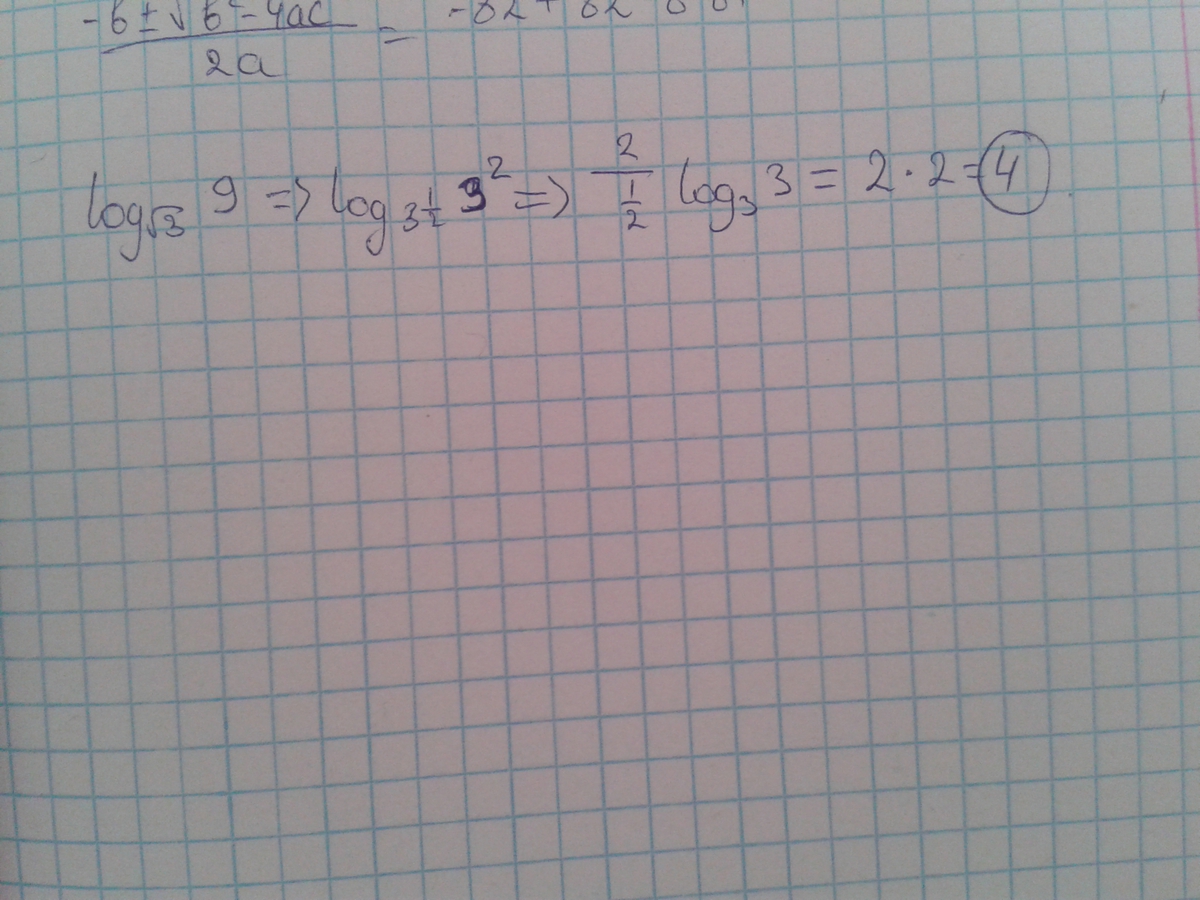 -b±√b²-4ac / 2a =
log√3 9 => log3^½ 3² => 2/½ log₃ 3 = 2·2=4